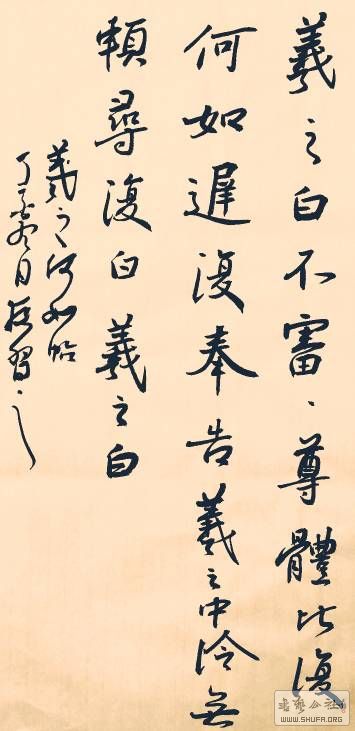 羲之白不審、尊體比復
何如遲復奉告羲之中冷無
賴尋復白羲之白
羲之何如帖
丁 日 習之
书艺公社
WWW.SHUFA.ORG